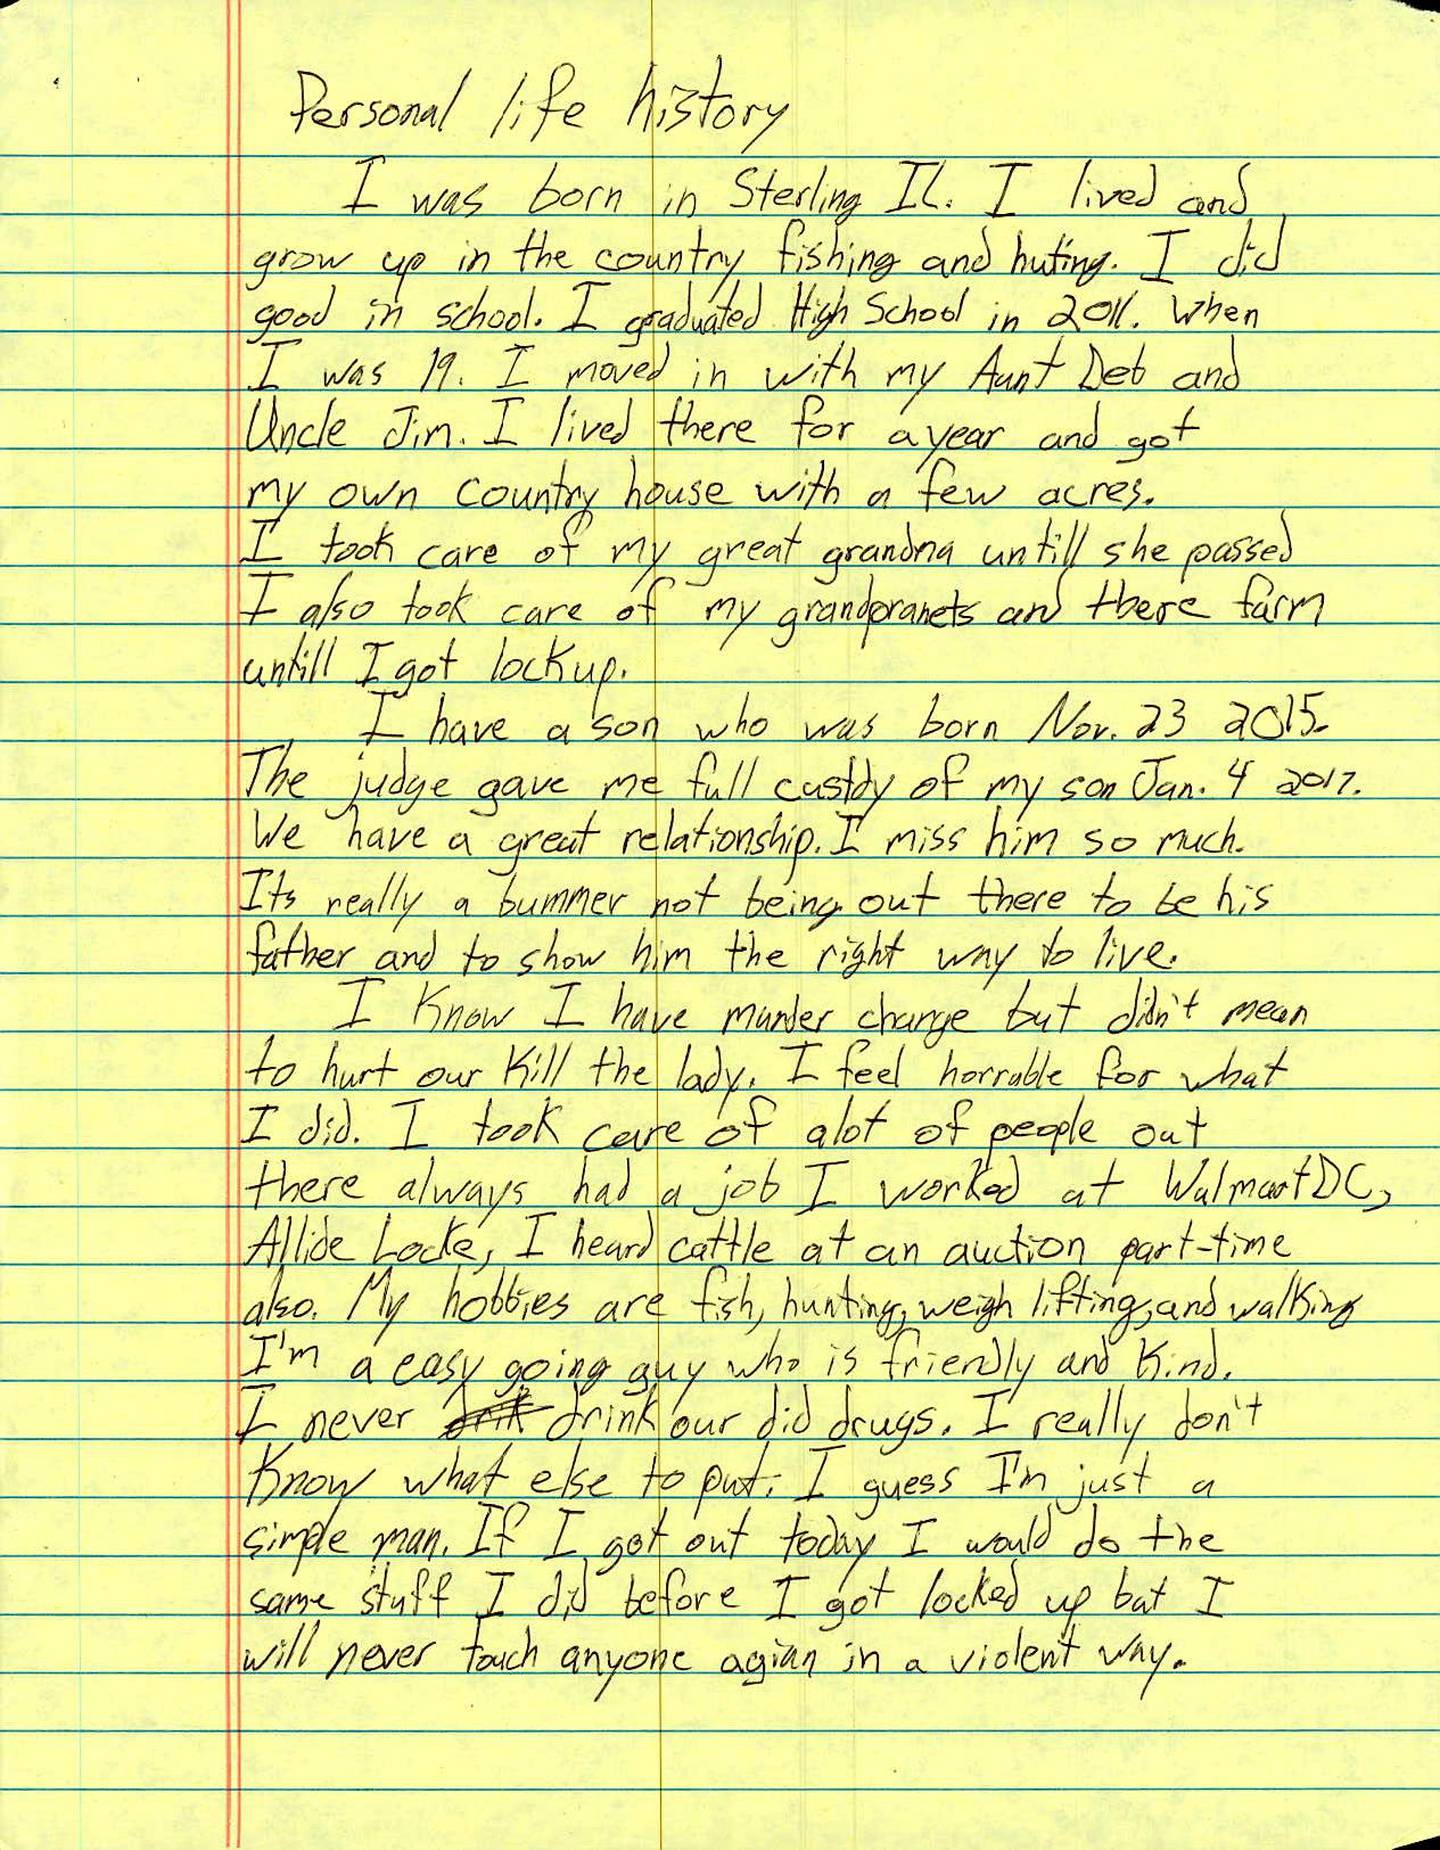 Personal life history
I was born in Sterling IL. I lived and
grow up in the country fishing and huting. I did
good in school. I graduated High School in 2011. When
I was 19. I moved in with my Aunt Deb and
Uncle Jim. I lived there for a year and got
my own country house with a few acres.
I took care of my great grandma untill she passed
I also took care of my grandpranets and there farm
untill I got lockup.
I have a son who was born Nov. 23 2015.
The judge gave me full custdy of my son Jan. 4 2017.
We have a great relationship. I miss him so much.
Its really a bummer not being out there to be his
father and to show him the right way to live.
I Know I have murder charge but didn't mean
to hurt our Kill the lady. I feel horrable for what
I did. I took care of alot of people out
there always had a job I worked at Walmart DC,
Allide Locke, I heard cattle at an auction part-time
also. My hobbies are fish, hunting, weigh lifting, and walking
I'm a easy going guy who is friendly and Kind.
I never drink our did drugs. I really don't
Know what else to put. I guess I'm just a
simple man. If I got out today I would do the
same stuff I did before I got locked up but I
will never touch anyone agian in a violent way.